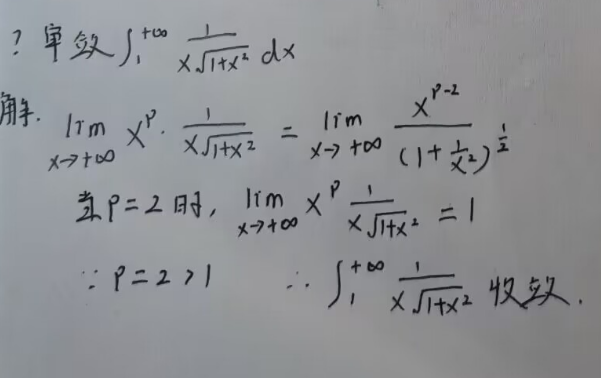 ? 审敛 ∫₁^{+∞} \frac{1}{x\sqrt{1+x^2}} dx
解. \lim_{x→+∞} x^p · \frac{1}{x\sqrt{1+x^2}} = \lim_{x→+∞} \frac{x^{p-2}}{(1+\frac{1}{x^2})^{\frac{1}{2}}}
当 p=2 时, \lim_{x→+∞} x^p \frac{1}{x\sqrt{1+x^2}} = 1
∵ p=2>1 ∴ ∫₁^{+∞} \frac{1}{x\sqrt{1+x^2}} 收敛.